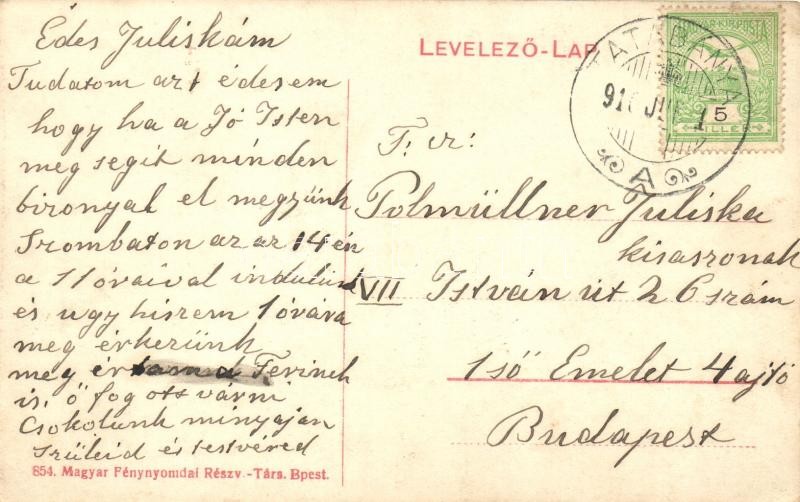 Édes Juliskám
Tudatom azt édesem
hogy ha a Jó Isten
meg segit minden
bizonyal el megyünk
Szombaton az az 14 én
a 11 óraival indulunk
és ugy hiszem 1 óvára
meg érkezünk
meg a Ferinek
is, ő fog ott várni
Csokolunk minyájan
Szüleid és testvéred
854. Magyar Fénynyomdai Részv.-Társ. Bpest.
LEVELEZŐ-LAP
MAGYAR KIR. POSTA
5
FILLÉR
TATABÁNYA
A
T. cz:
Polmüllner Juliska
kisaszonak
VII István út 26 szám
1 ső Emelet 4 ajtó
Budapest